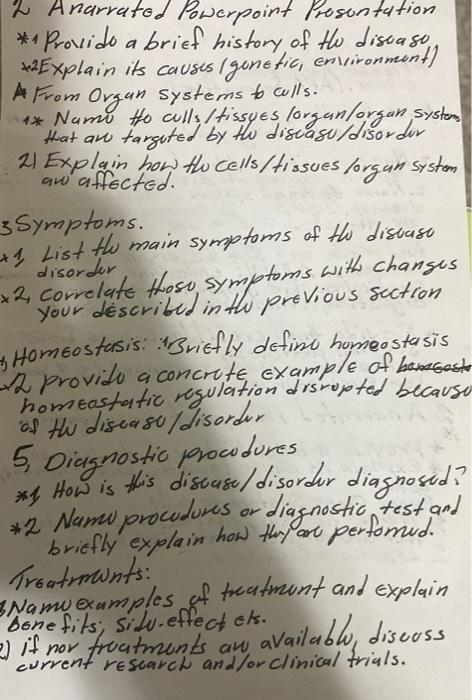 2 A narrated Powerpoint Presentation
*1 Provide a brief history of the disease
*2 Explain its causes (genetic, environment)
A From Organ systems to cells.
1* Name the cells/tissues/organ/organ systems
that are targeted by the disease/disorder
2) Explain how the cells/tissues/organ system
are affected.
3 Symptoms.
*1, List the main symptoms of the disease
disorder
*2, correlate those symptoms with changes
your described in the previous section
Homeostasis: *1 Briefly define homeostasis
2 provide a concrete example of homeost
homeostatic regulation disrupted because
of the disease/disorder
5, Diagnostic procedures
*1 How is this disease/disorder diagnosed?
*2 Name procedures or diagnostic test and
briefly explain how they are perfomed.
Treatments:
Name examples of treatment and explain
benefits, side-effect etc.
2) if nor treatments are available, discuss
current research and/or clinical trials.